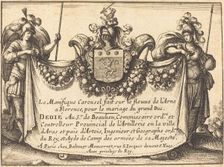 Le Magnifique Carousel fait sur le fleuve de l'Arne
a Florence, pour le mariage du grand Duc.
DEDIE Au Sr. de Beaulieu, Commissaire ordre. et
Controlleur Provincial de l'Artillerie en la ville
d'Aras et païs d'Artois, Ingenieur et Geographe ordre.
du Roy, et Ayde de Camp des armées de sa Majesté.
A Paris chez Balthasar Moncornet, rue S. Jacques devant S. Yves
Avec privilege du Roy.